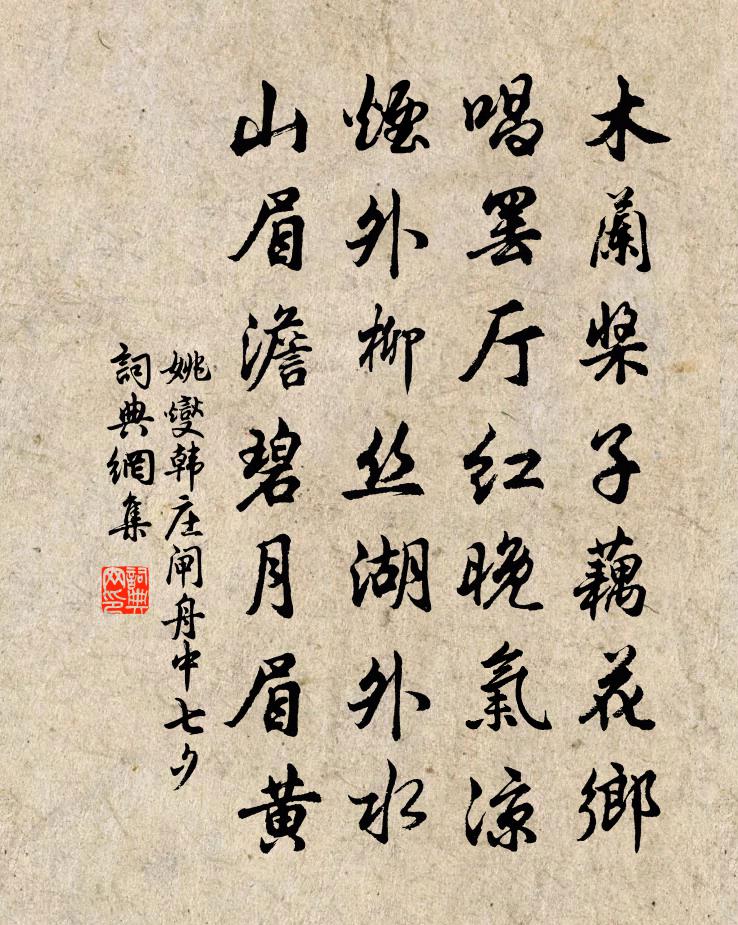 木蘭槳子藕花鄉
唱罢厅红晚氣凉
煙外柳丝湖外水
山眉澹碧月眉黄
姚燮韩庄闸舟中七夕
詞典網集
詞典
网印